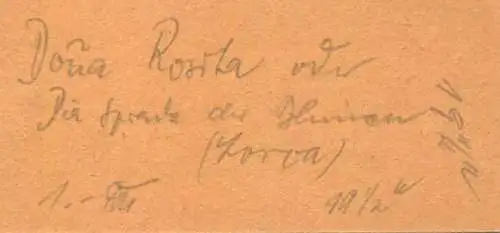 Doña Rosita oder
Die Sprache der Blumen
(Lorca)
1.- 19 1/2 h